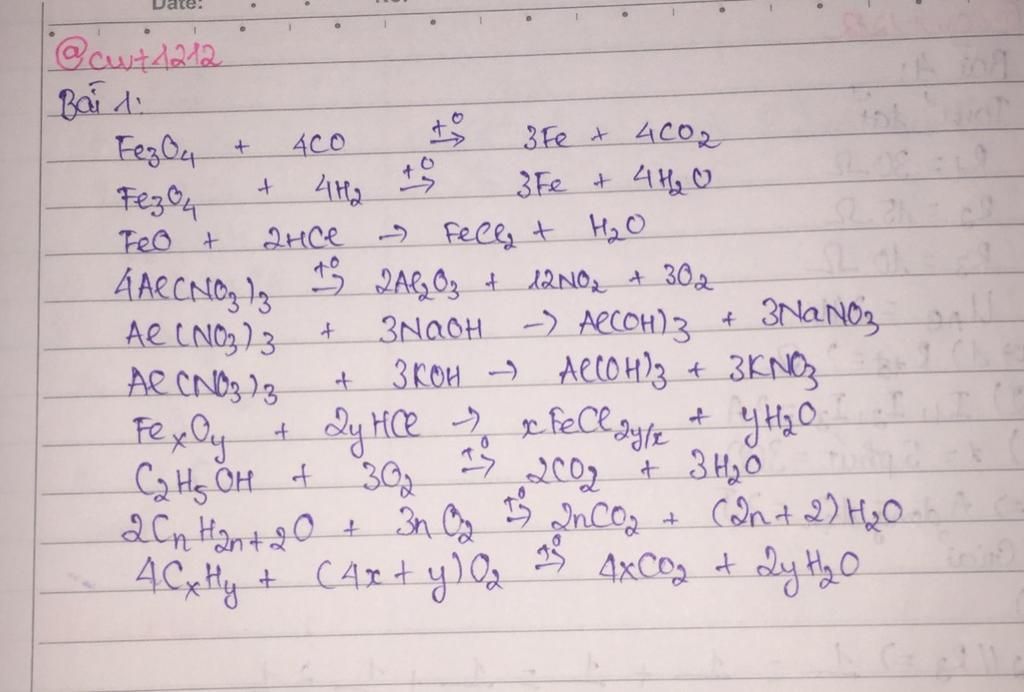 Date:
@cwt1212
Bài 1:
Fe₃O₄ + 4CO t⁰→ 3Fe + 4CO₂
Fe₃O₄ + 4H₂ t⁰→ 3Fe + 4H₂O
FeO + 2HCl → FeCl₂ + H₂O
4Al(NO₃)₃ t⁰→ 2Al₂O₃ + 12NO₂ + 3O₂
Al(NO₃)₃ + 3NaOH → Al(OH)₃ + 3NaNO₃
Al(NO₃)₃ + 3KOH → Al(OH)₃ + 3KNO₃
FeₓOy + 2yHCl → xFeCl2y/x + yH₂O
C₂H₅OH + 3O₂ t⁰→ 2CO₂ + 3H₂O
2CnH2n+2O + 3nO₂ t⁰→ 2nCO₂ + (2n+2)H₂O
4CₓHy + (4x+y)O₂ t⁰→ 4xCO₂ + 2yH₂O